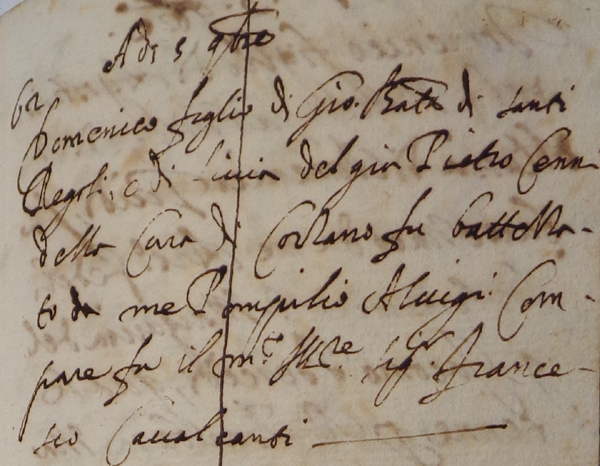 Adi 5 9bre
62
Domenico figlio di Gio. Batta di santi
Regoli, e di livia del gia Pietro Cenni
della Cura di Corzano fu battezza-
to da me Pompilio Aluigi. Com-
pare fu il m.to Ill.re Sig.r france-
sco Cavalcanti